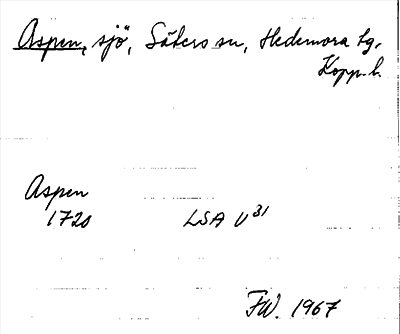 Aspen, sjö, Säters sn, Hedemora tg,
Kopp. l.
Aspen
1720 LSA U 31
FW. 1967